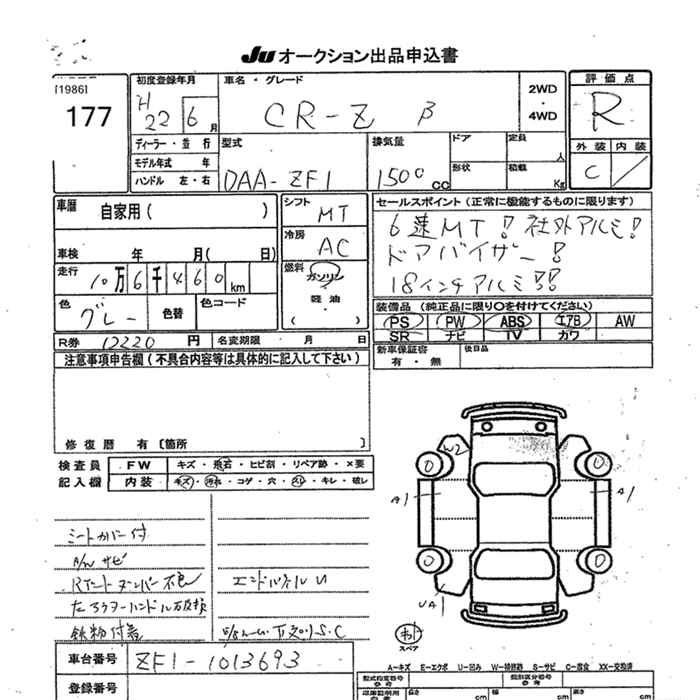 JU オークション出品申込書
[1986]
177
初度登録年月
H22 6 月
車名・グレード
CR-Z β
2WD
・
4WD
評価点
R
ディーラー・並行
モデル年式 年
ハンドル 左・右
型式
DAA-ZF1
排気量
1500 cc
ドア
定員
人
形状
積載
Kg
外装 内装
C
車歴 自家用( )
シフト
MT
セールスポイント(正常に機能するものに限ります)
6速MT! 社外アルミ!
ドアバイザー!
18インチアルミ!!
車検 年 月( 日)
冷房
AC
走行
10万6千460km
燃料
ガソリン
軽油
( )
色
グレー
色替
色コード
装備品(純正品に限り○を付けてください)
PS PW ABS エアB AW
SR ナビ TV カワ
R券 12220 円
名変期限 月 日
新車保証書
有・無
後日品
注意事項申告欄(不具合内容等は具体的に記入して下さい)
修復歴 有〔箇所 〕
検査員
記入欄
FW キズ・飛石・ヒビ割・リペア跡・×要
内装 キズ・汚れ・コゲ・穴・スレ・キレ・破レ
W2
0 0
A1 A1
0 0
UA1
スペア
シートカバー付
サビ
鉄粉付着
S.C
車台番号 ZF1-1013693
登録番号
A-キズ E-エクボ U-凹み W-補修跡 S-サビ C-腐食 XX-交換済
型式指定番号
参考
類別区分番号
参考
長さ cm
幅 cm
高さ cm